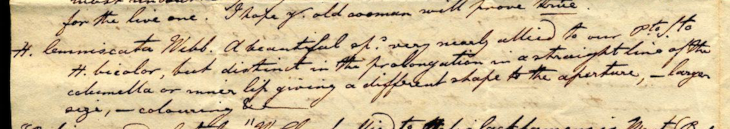 for the live one. I hope yr. old woman will prove true.
H. lemniscata Webb. A beautiful sp.s very nearly allied to our Pto. Sto.
H. bicolor, but distinct in the prolongation in a straight line of the
columella or inner lip giving a different shape to the aperture, – larger
size, – colouring &c